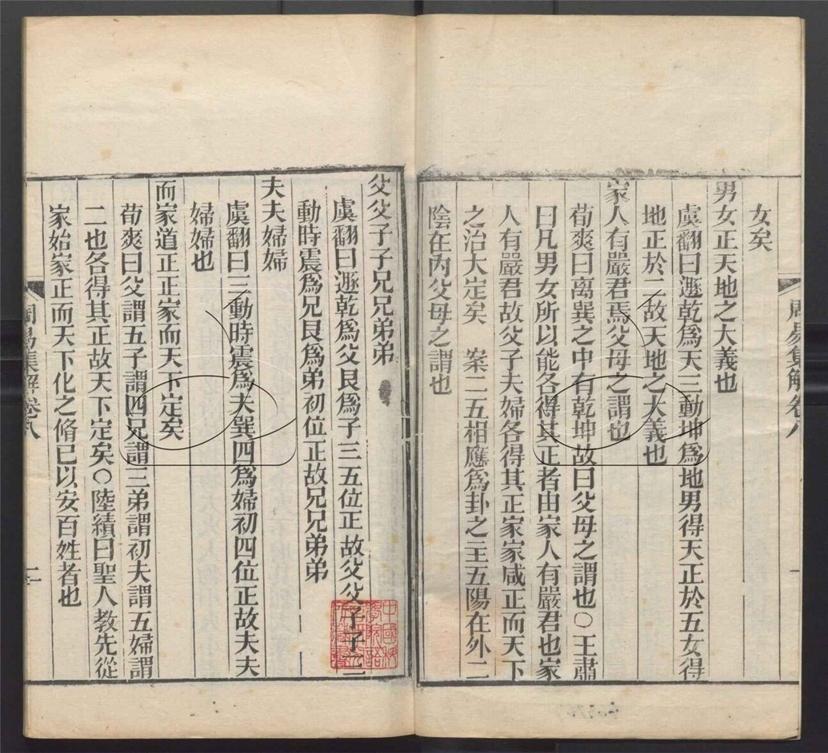 周易集解卷八
女矣
男女正天地之大義也
虞翻曰遯乾爲天三動坤爲地男得天正於五女得
地正於二故天地之大義也
家人有嚴君焉父母之謂也
荀爽曰離巽之中有乾坤故曰父母之謂也○王肅
曰凡男女所以能各得其正者由家人有嚴君也家
人有嚴君故父子夫婦各得其正家家咸正而天下
之治大定矣 案二五相應爲卦之主五陽在外二
陰在內父母之謂也
父父子子兄兄弟弟
虞翻曰遯乾爲父艮爲子三五位正故父父子子三
動時震爲兄艮爲弟初位正故兄兄弟弟
夫夫婦婦
虞翻曰三動時震爲夫巽四爲婦初四位正故夫夫
婦婦也
而家道正正家而天下定矣
荀爽曰父謂五子謂四兄謂三弟謂初夫謂五婦謂
二也各得其正故天下定矣○陸績曰聖人教先從
家始家正而天下化之脩已以安百姓者也
周易集解卷八
二